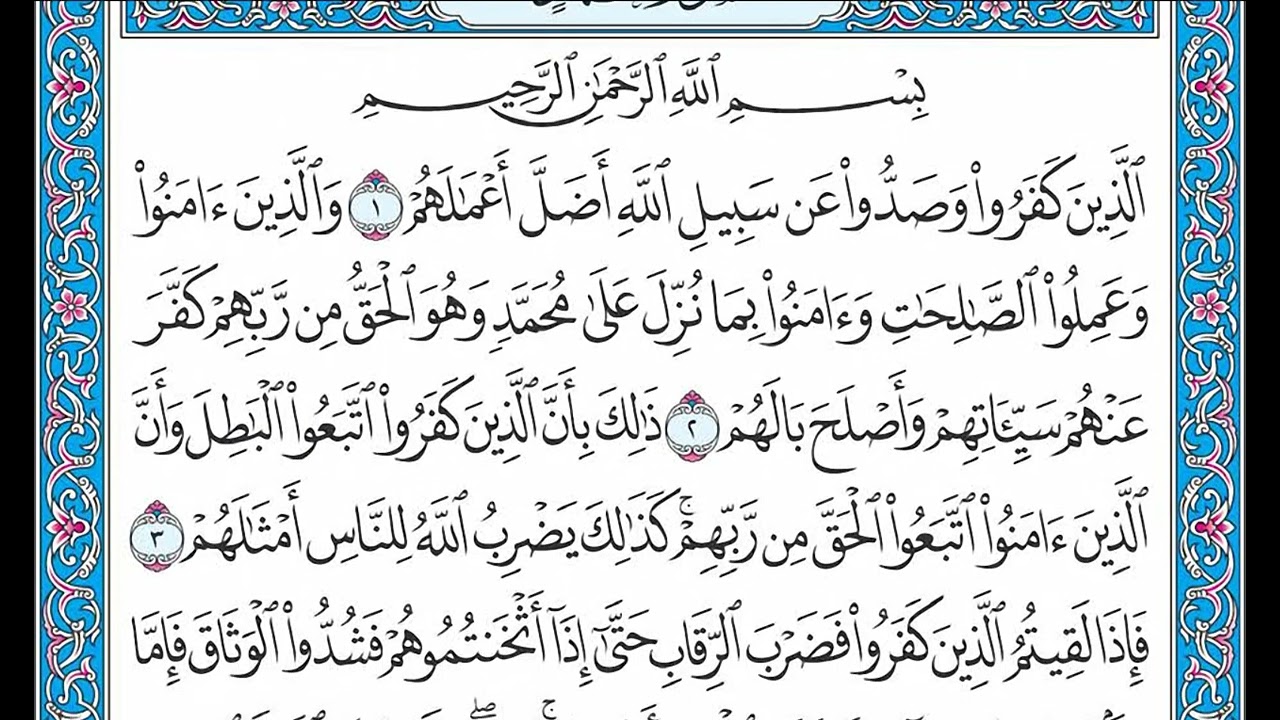 بِسْمِ ٱللَّهِ ٱلرَّحْمَٰنِ ٱلرَّحِيمِ
ٱلَّذِينَ كَفَرُواْ وَصَدُّواْ عَن سَبِيلِ ٱللَّهِ أَضَلَّ أَعْمَٰلَهُمْ ١ وَٱلَّذِينَ ءَامَنُواْ
وَعَمِلُواْ ٱلصَّٰلِحَٰتِ وَءَامَنُواْ بِمَا نُزِّلَ عَلَىٰ مُحَمَّدٍ وَهُوَ ٱلْحَقُّ مِن رَّبِّهِمْ كَفَّرَ
عَنْهُمْ سَيِّـَٔاتِهِمْ وَأَصْلَحَ بَالَهُمْ ٢ ذَٰلِكَ بِأَنَّ ٱلَّذِينَ كَفَرُواْ ٱتَّبَعُواْ ٱلْبَٰطِلَ وَأَنَّ
ٱلَّذِينَ ءَامَنُواْ ٱتَّبَعُواْ ٱلْحَقَّ مِن رَّبِّهِمْ ۚ كَذَٰلِكَ يَضْرِبُ ٱللَّهُ لِلنَّاسِ أَمْثَٰلَهُمْ ٣
فَإِذَا لَقِيتُمُ ٱلَّذِينَ كَفَرُواْ فَضَرْبَ ٱلرِّقَابِ حَتَّىٰٓ إِذَآ أَثْخَنتُمُوهُمْ فَشُدُّواْ ٱلْوَثَاقَ فَإِمَّا